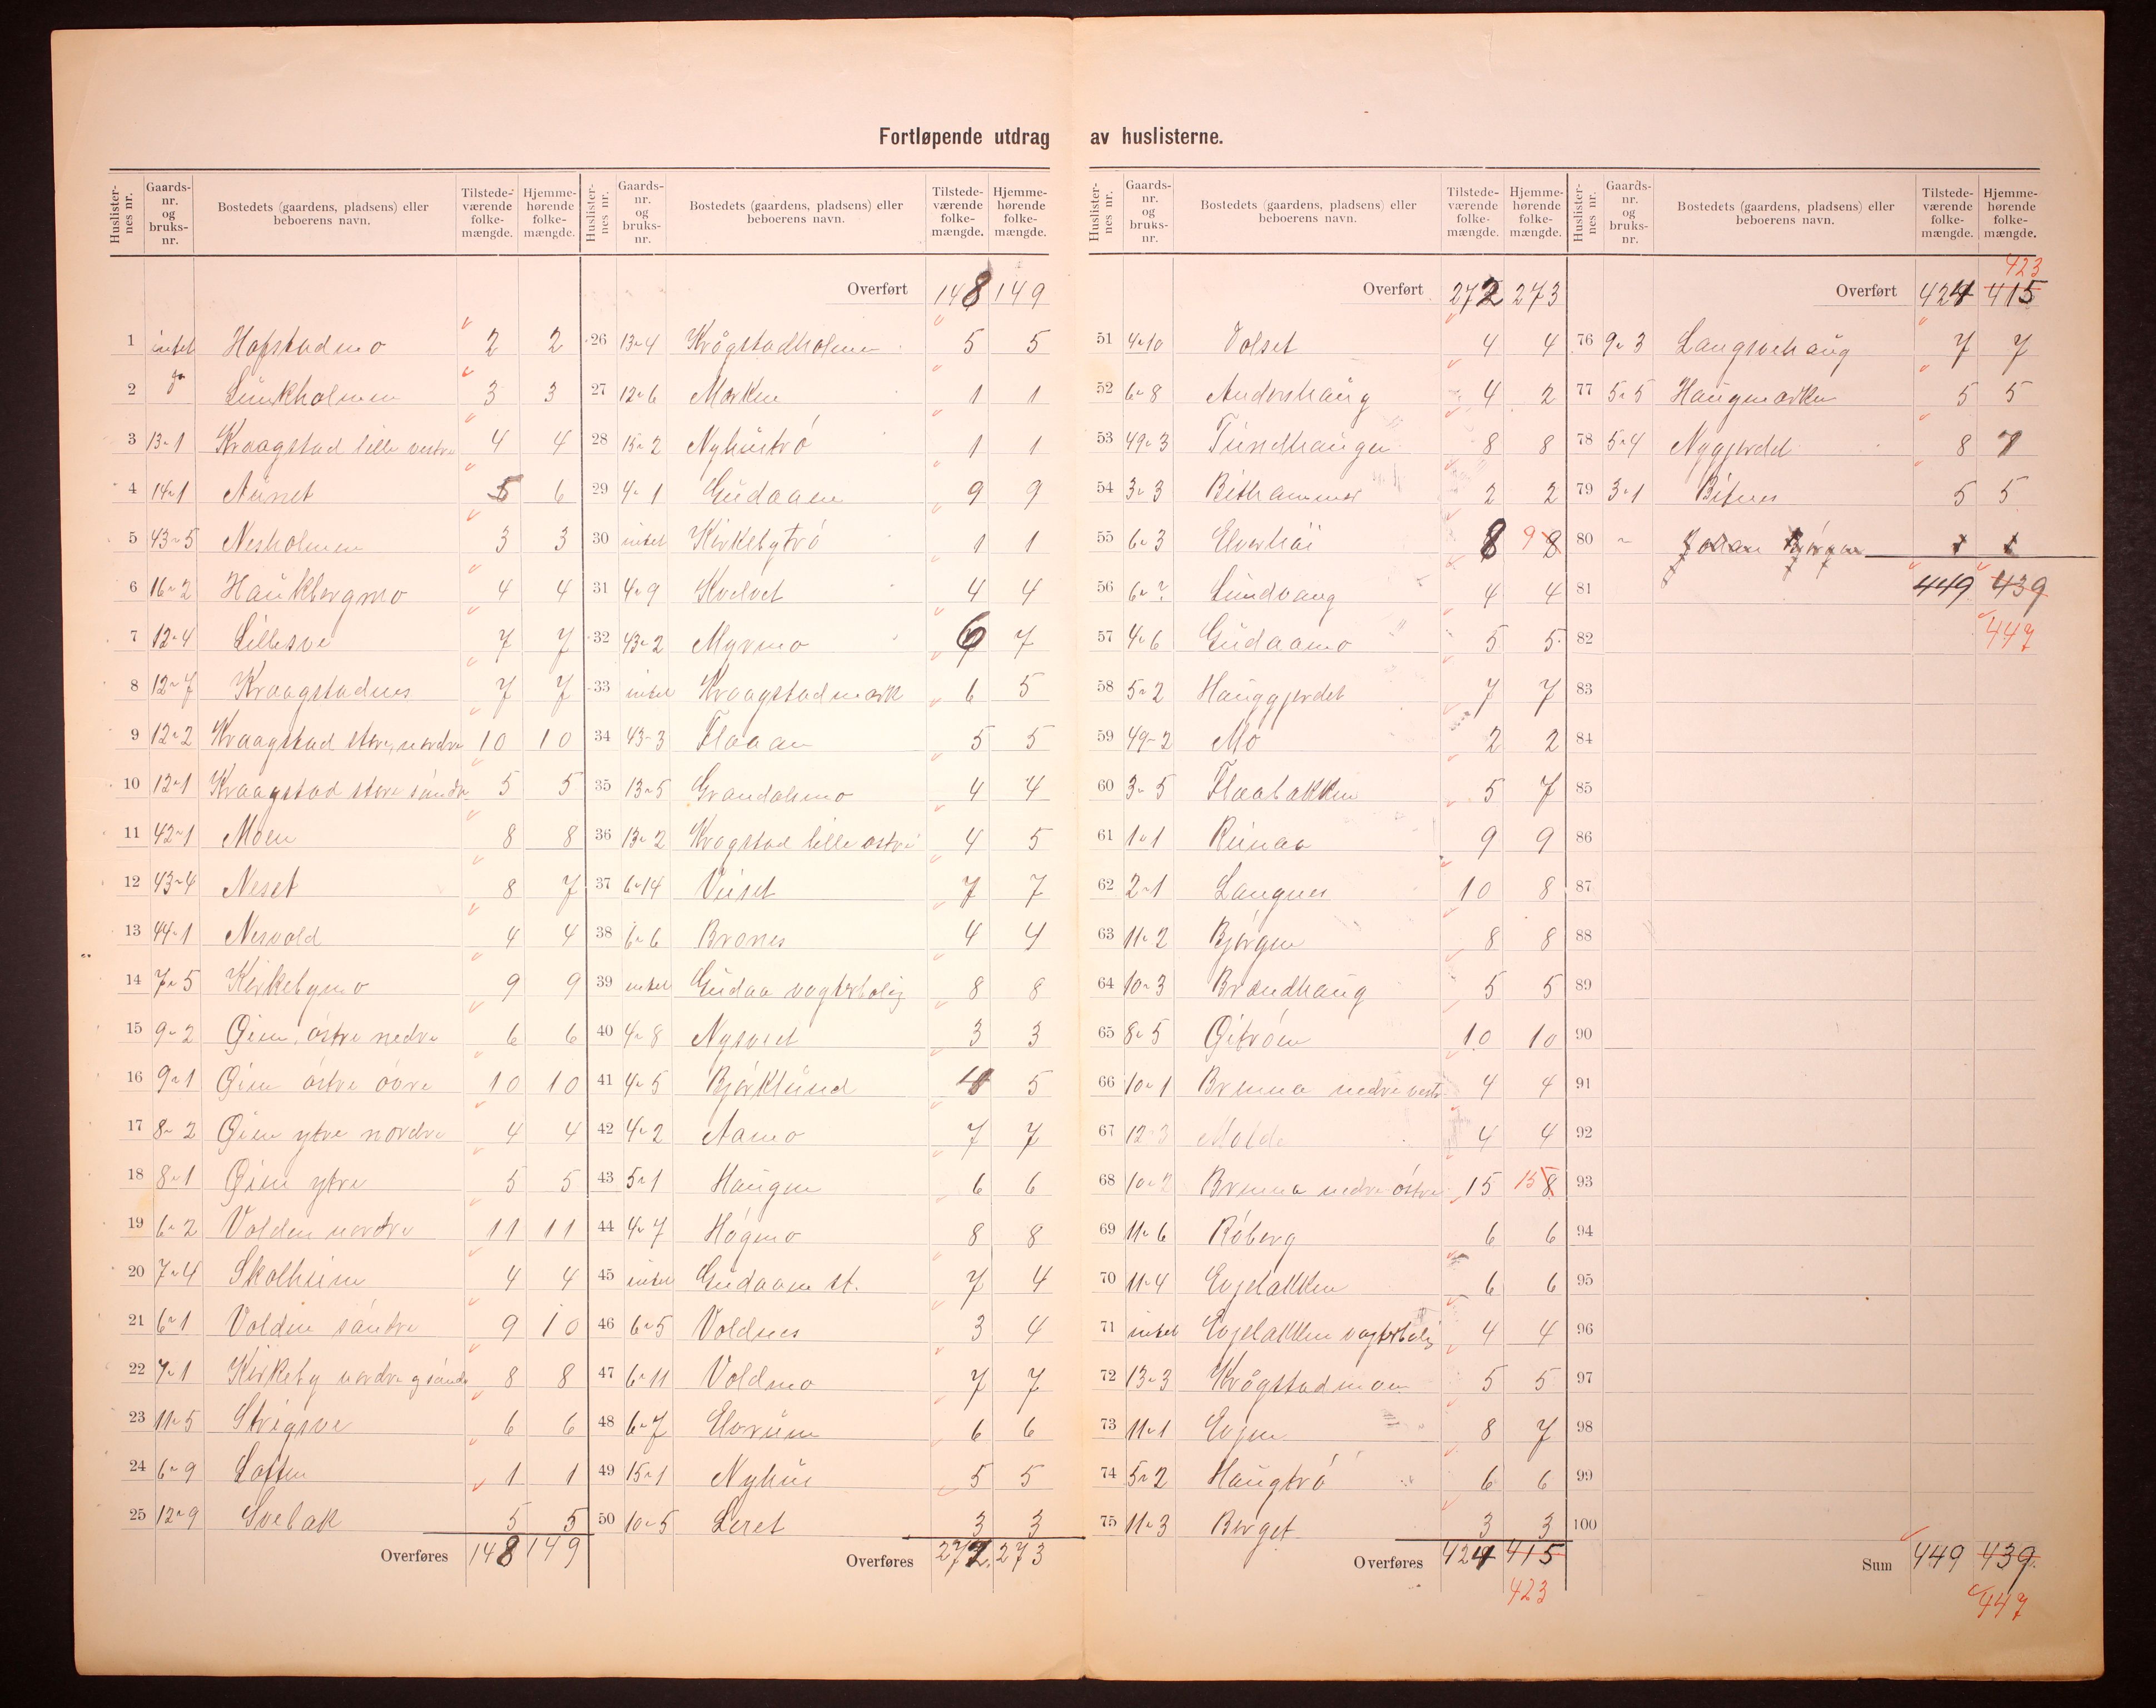 Fortløpende utdrag av huslisterne.
Huslisternes nr. Gaardsnr. og bruksnr. Bostedets (gaardens, pladsens) eller beboerens navn. Tilstedeværende folkemængde. Hjemmehørende folkemængde.
1 intet Hofstadmo 2 2
2 Lunkholmen 3 3
3 13-1 Kraagstad lille vestre 4 4
4 14-1 Aunet 5 6
5 43-5 Nesholmen 3 3
6 16-2 Haukbergmo 4 4
7 12-4 Lillesve 7 7
8 12-7 Kraagstadnes 7 7
9 12-2 Kraagstad store, nordre 10 10
10 12-1 Kraagstad store søndre 5 5
11 42-1 Moen 8 8
12 43-4 Neset 8 7
13 44-1 Nesvold 4 4
14 7-5 Kirkebymo 9 9
15 9-2 Øien, østre nedre 6 6
16 9-1 Øien østre øvre 10 10
17 8-2 Øien ytre nordre 4 4
18 8-1 Øien ytre 5 5
19 6-2 Volden nordre 11 11
20 7-4 Skolheim 4 4
21 6-1 Volden søndre 9 10
22 7-1 Kirkeby nordre og søndre 8 8
23 11-5 Strigsve 6 6
24 6-9 Loften 1 1
25 12-9 Svebak 5 5
Overføres 148 149
Huslisternes nr. Gaardsnr. og bruksnr. Bostedets (gaardens, pladsens) eller beboerens navn. Tilstedeværende folkemængde. Hjemmehørende folkemængde.
Overført 148 149
26 13-4 Krågstadholmen 5 5
27 12-6 Marken 1 1
28 15-2 Nyhustrø 1 1
29 4-1 Gudaaen 9 9
30 intet Kirkebytrø 1 1
31 4-9 Kvelvet 4 4
32 43-2 Myrmo 6 7
33 intet Kraagstadmark 6 5
34 43-3 Flaaan 5 5
35 13-5 Grandalsmo 4 4
36 13-2 Kragstad lille østre 4 5
37 6-14 Viiset 7 7
38 6-6 Brones 4 4
39 intet Gudaa vogterbolig 8 8
40 4-8 Nysveet 3 3
41 4-5 Bjørklund 4 5
42 4-2 Aamo 7 7
43 5-1 Haugen 6 6
44 4-7 Høgmo 8 8
45 intet Gudaaen st. 7 4
46 6-5 Voldnes 3 4
47 6-11 Voldmo 7 7
48 6-7 Elvrum 6 6
49 15-1 Nyhus 5 5
50 10-5 Leret 3 3
Overføres 272 273
Huslisternes nr. Gaardsnr. og bruksnr. Bostedets (gaardens, pladsens) eller beboerens navn. Tilstedeværende folkemængde. Hjemmehørende folkemængde.
Overført 272 273
51 4-10 Volset 4 4
52 6-8 Andershaug 4 2
53 49-3 Tundhaugen 8 8
54 3-3 Bithammer 2 2
55 6-3 Elverhøi 8 9 8
56 6-? Lundvang 4 4
57 4-6 Gudaamo 5 5
58 5-2 Hauggjerdet 7 7
59 49-2 Mo 2 2
60 3-5 Flaabakken 5 7
61 1-1 Reinaa 9 9
62 2-1 Langnes 10 8
63 11-2 Bjørgen 8 8
64 10-3 Brændhaug 5 5
65 8-5 Øitrøen 10 10
66 10-1 Brenna nedre vestr 4 4
67 12-3 Molde 4 4
68 10-2 Brenna nedre østre 15 15 8
69 11-6 Røberg 6 6
70 11-4 Evjebakken 6 6
71 intet Evjebakken vogterbolig 4 4
72 13-3 Krågstadmoen 5 5
73 11-1 Evjen 8 7
74 5-2 Haugtrø 6 6
75 11-3 Berget 3 3
Overføres 424 415
423
Huslisternes nr. Gaardsnr. og bruksnr. Bostedets (gaardens, pladsens) eller beboerens navn. Tilstedeværende folkemængde. Hjemmehørende folkemængde.
423
Overført 424 415
76 9-3 Langsvehaug 7 7
77 5-5 Haugmarken 5 5
78 5-4 Nygjerdet 8 7
79 3-1 Bitnes 5 5
80
81 449 439
82 447
83
84
85
86
87
88
89
90
91
92
93
94
95
96
97
98
99
100
Sum 449 439
447